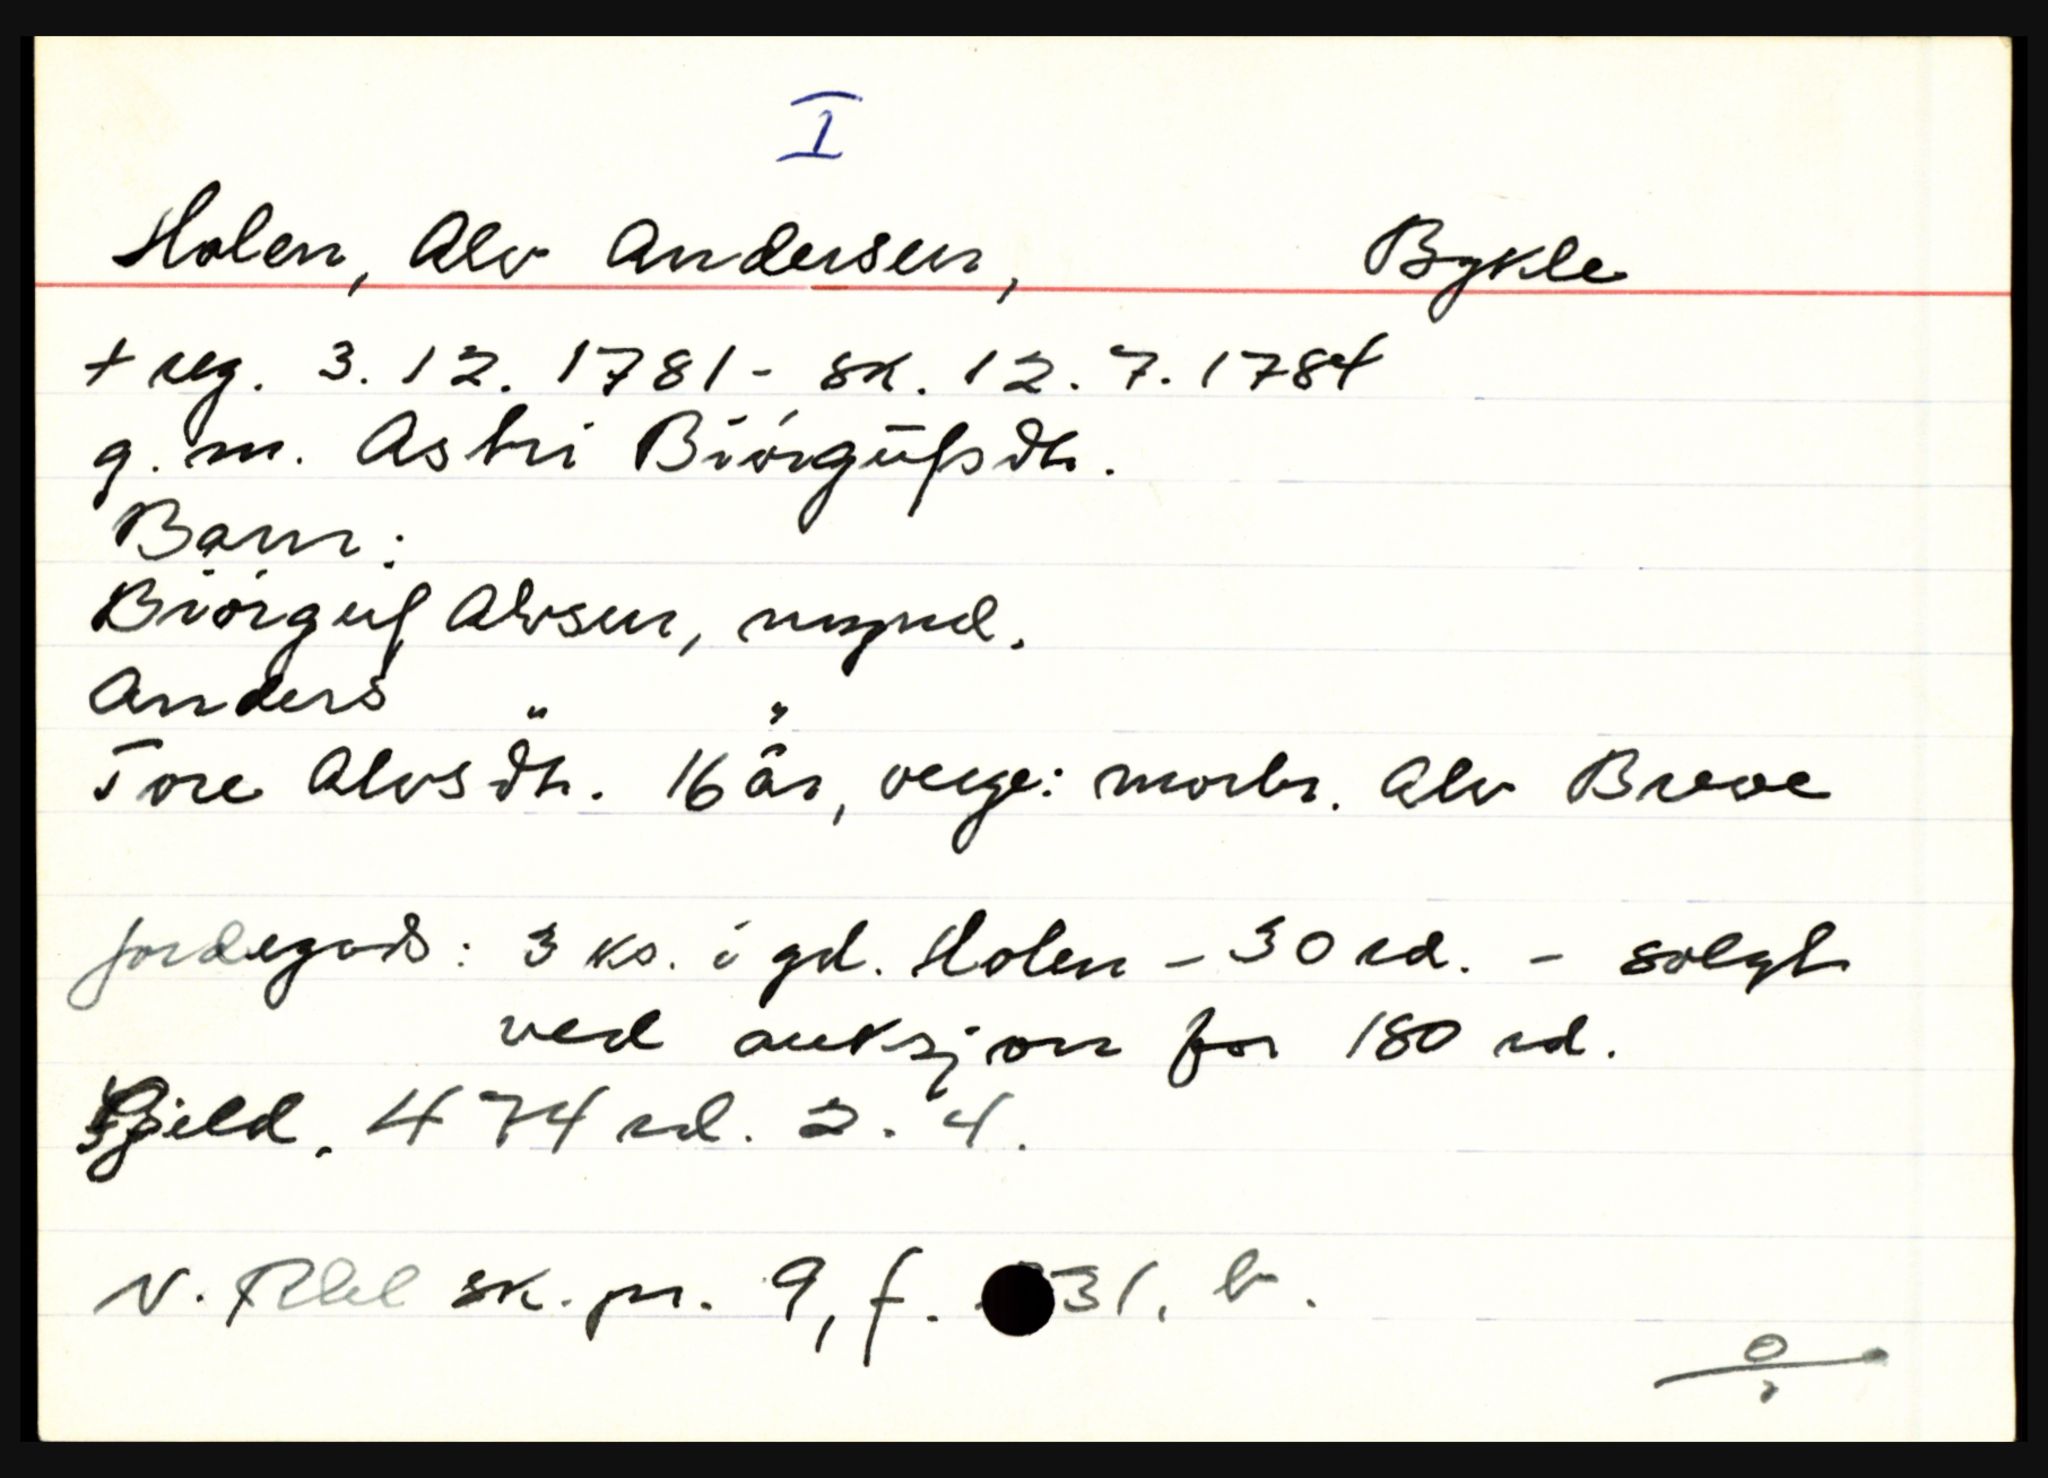 I
Holen, Alv Andersen, Bykle
+ reg. 3.12.1781 - sk. 12.7.1784
g.m. Astri Biórgùfsdtr.
Barn:
Biórguf Alvsen, mynd.
Anders " "
Tore Alvsdtr. 16 år, verge: morbr. Alv Breve
Jordegods: 3 ks. i gd. Holen - 30 rd. - solgt
ved auksjon for 180 rd.
Gjeld, 474 rd. 2. 4.
N. Rbl sk. pr. 9, f. 31. b.